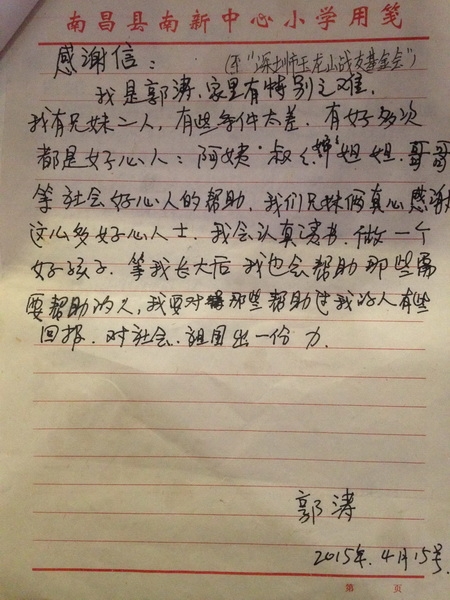 南昌县南新中心小学用笺
感谢信：
(至“深圳市玉龙山战友基金会”)
我是郭涛、家里有特别之难，
我有兄妹二人，有些条件太差．有好多次
都是好心人：阿姨、叔く、姐姐、哥哥
等社会好心人的帮助．我们兄妹俩真心感谢
这么多好心人士．我会认真读书．做一个
好孩子．等我长大后我也会帮助那些需
要帮助的人，我要对那些帮助过我的人有些
回报．对社会．祖国出一份力．
郭涛
2015年.4月15号.
第 页